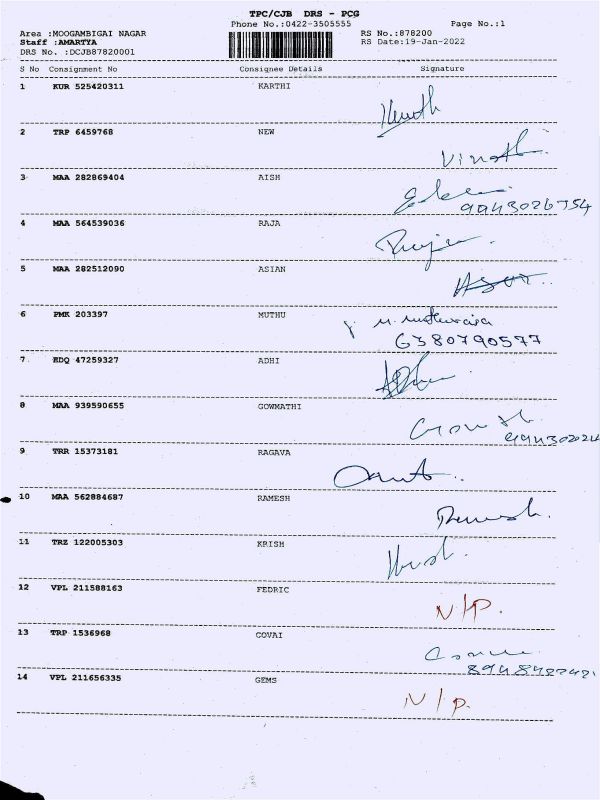 TPC/CJB DRS - PCG
Phone No.:0422-3505555 Page No.:1
Area :MOOGAMBIGAI NAGAR RS No.:878200
Staff :AMARTYA RS Date:19-Jan-2022
DRS No. :DCJB87820001
S No Consignment No Consignee Details Signature
1 KUR 525420311 KARTHI
2 TRP 6459768 NEW
Vinoth
3 MAA 282869404 AISH
9943026754
4 MAA 564539036 RAJA
5 MAA 282512090 ASIAN
6 PMK 203397 MUTHU
6380790577
7 EDQ 47259327 ADHI
8 MAA 939590655 GOWMATHI
9 TRR 15373181 RAGAVA
10 MAA 562884687 RAMESH
Ramesh.
11 TRZ 122005303 KRISH
12 VPL 211588163 FEDRIC
N/P.
13 TRP 1536968 COVAI
14 VPL 211656335 GEMS
N/P.